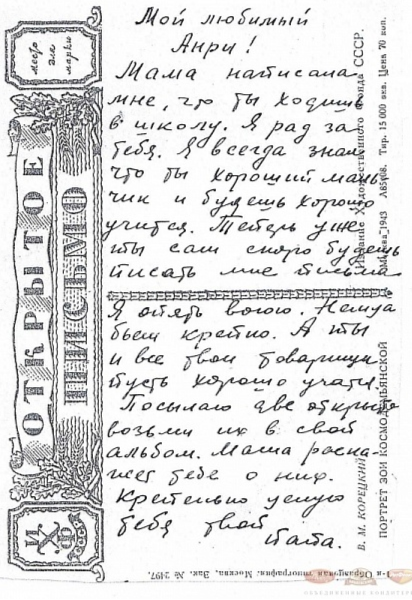 Мой любимый
Анри!
Мама написала
мне, что ты ходишь
в школу. Я рад за
тебя. Я всегда знал
что ты хороший маль
чик и будешь хорошо
учится. Теперь уже
ты сам скоро будешь
писать мне письма
Я опять воюю. Немца
бьем крепко. А ты
и все твои товарищи
пусть хорошо учатся.
Посылаю две открыт
возьми их в свой
альбом. Мама расска
жет тебе о них.
Крепенько целую
тебя твой
папа.
место
для
марки
ОТКРЫТОЕ
ПИСЬМО
ИХФ
В. М. КОРЕЦКИЙ
ПОРТРЕТ ЗОИ КОСМОДЕМЬЯНСКОЙ
Издание Художественного фонда СССР.
Москва 1943 Тир. 15 000 экз. Цена 70 коп.
1-я Образцовая типография. Москва, Зак. № 2497.
ОБЪЕДИНЕННЫЕ КОНДИТЕРЫ